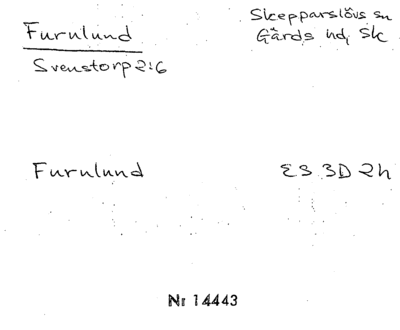 Furulund
Svenstorp 2:6
Skepparslövs sn
Gärds hd, Sk
Furulund
ES 3D 2h
Nr 14443